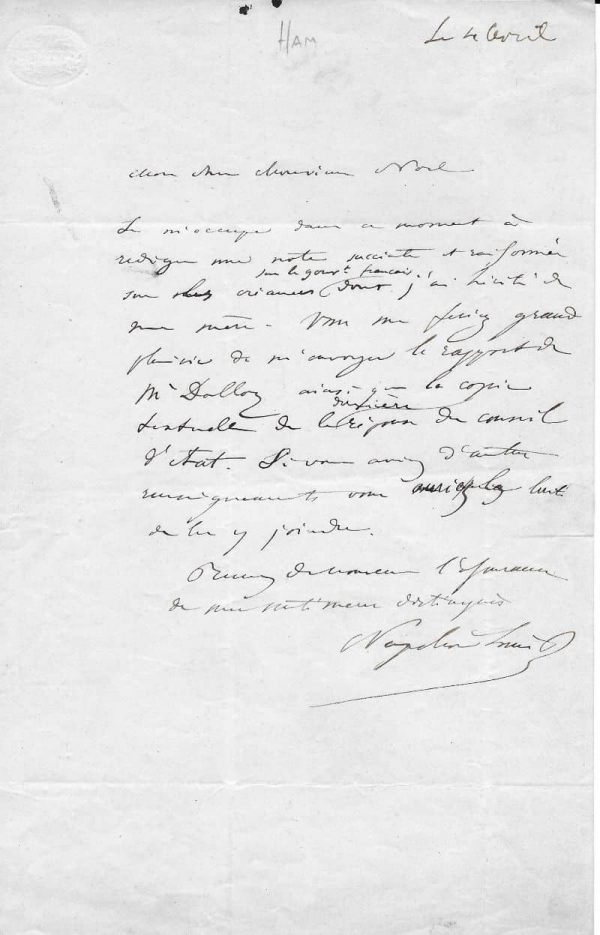 HAM
Le 4 Avril
Mon cher Monsieur Noël
Je m'occupe dans ce moment à
rédiger une note succincte et raisonnée
sur le gouvt français
sur les créances dont j'ai hérité de
ma mère. Vous me feriez grand
plaisir de m'envoyer le rapport de
Mr Dalloz ainsi que la copie
dernière
textuelle de la réponse du conseil
d'état. Si vous aviez d'autres
renseignements vous auriez la bonté
de les y joindre.
Recevez de nouveau l'assurance
de mes sentimens distingués
Napoléon Louis